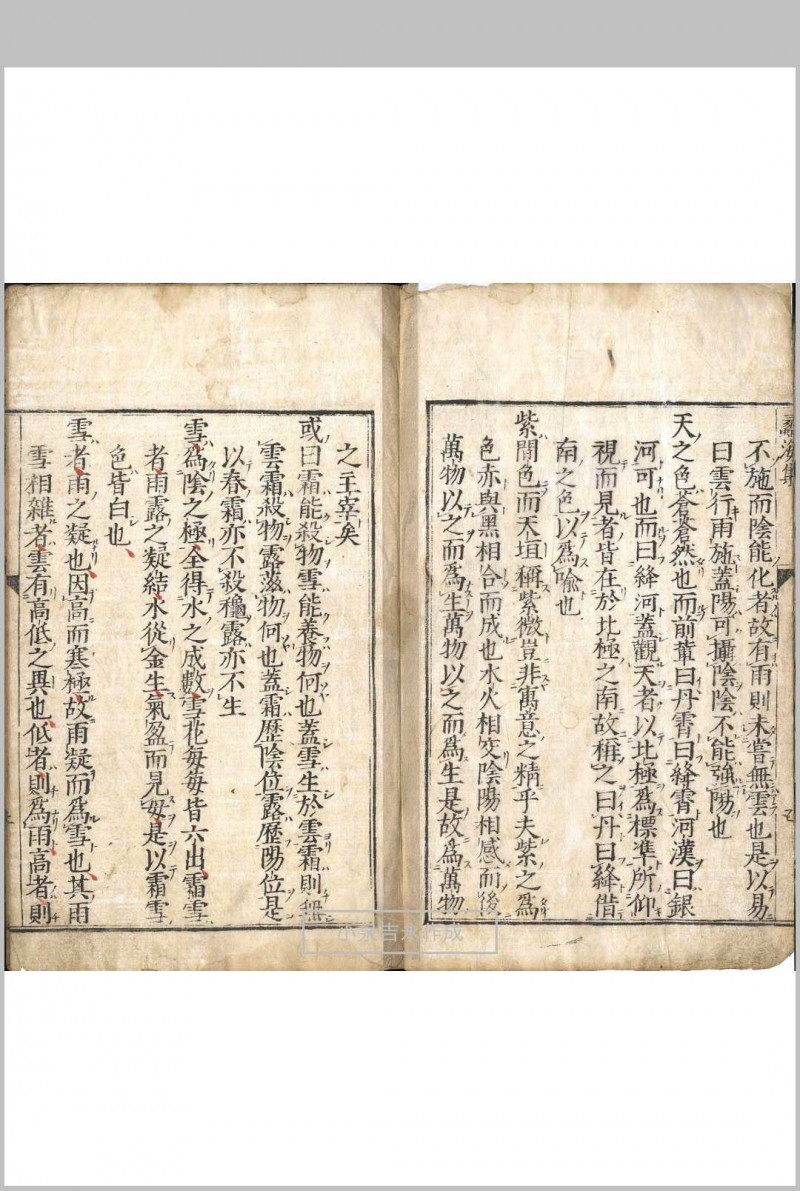 不施而陰能化者故有雨則未嘗無雲也是以易
曰雲行雨施蓋陽可攝陰陰不能強陽也
天之色蒼蒼然也而前輩曰丹霄曰絳霄河漢曰銀
河可也而曰絳河蓋觀天者以北極爲標準所仰
視而見者皆在於北極之南故稱之曰丹曰絳借
南之色以爲喩也
紫間色而天垣稱紫微豈非寓意之精乎夫紫之爲
色赤與黑相合而成也水火相交陰陽相感而後
萬物以之而爲生萬物以之而爲生是故爲萬物
之主宰矣
或曰霜能殺物雪能養物何也蓋雪生於雲霜則無
雲霜殺物露滋物何也蓋霜歷陰位露歷陽位是
以春霜亦不殺龝露亦不生
雪爲陰之極全得水之成數雪花每每皆六出霜雪
者雨露之凝結水從金生氣盈而見母是以霜雪
色皆白也
雪者雨之凝也因高而寒極故雨凝而爲雪也其雨
雪相雜者雲有高低之異也低者則爲雨高者則